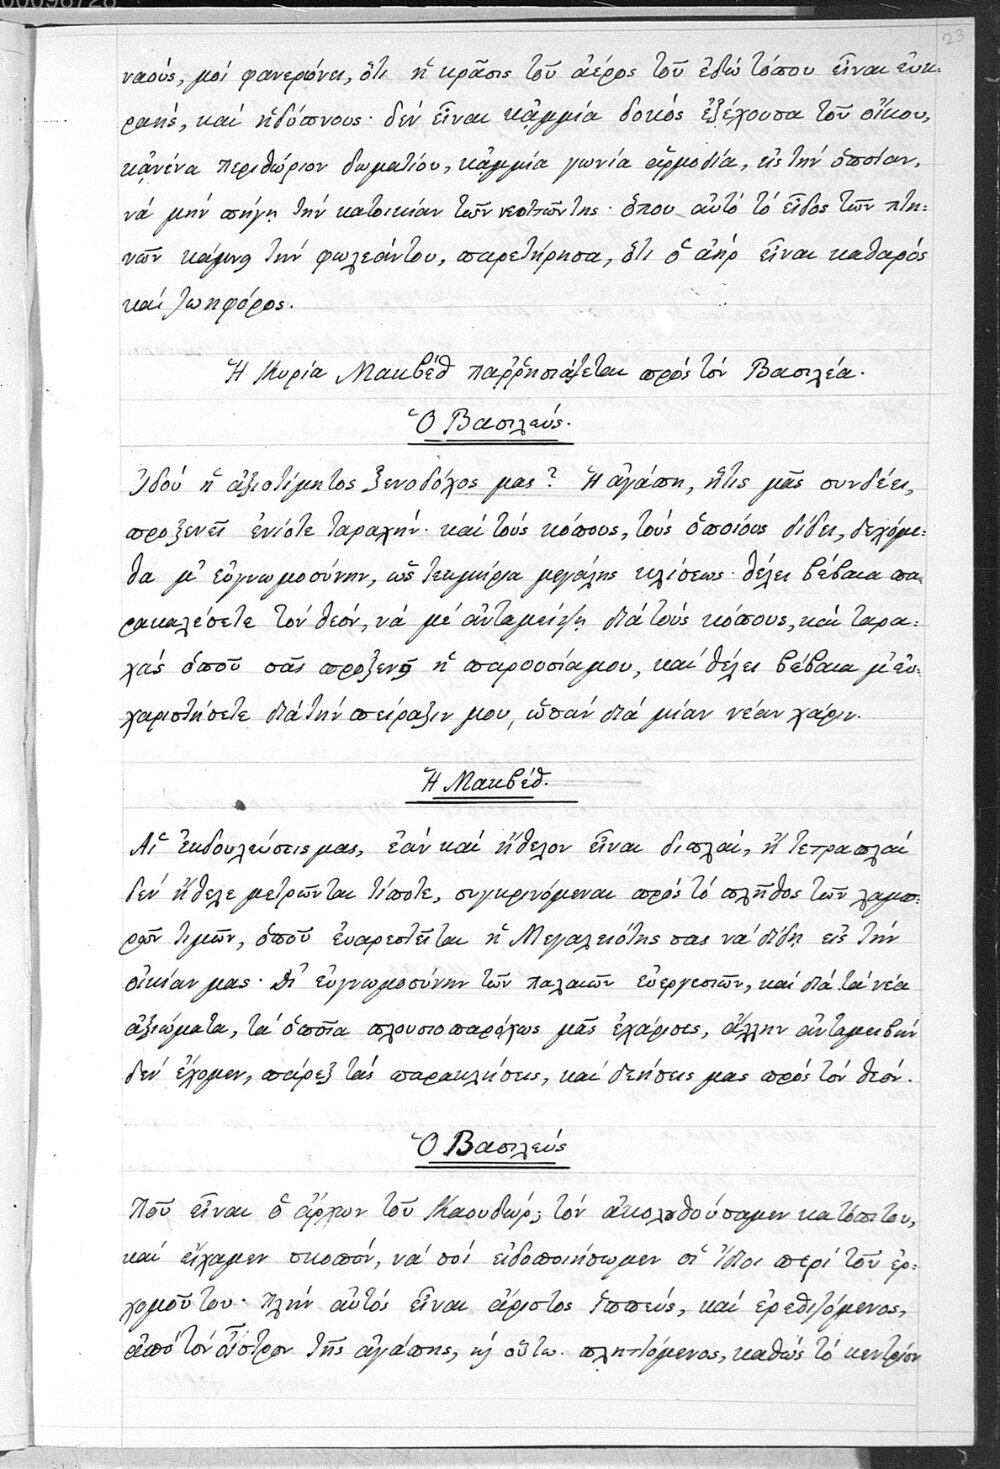 00098728
23
ναούς, μοί φανερώνει, ὅτι ἡ κρᾶσις τοῦ ἀέρος τοῦ ἐδῶ τόπου εἶναι εὐκ-
ραής, καί ἡδύπνους· δέν εἶναι κᾀμμία δοκός ἐξέχουσα τοῦ οἴκου,
κᾀνένα περιθώριον δωματίου, κᾀμμία γωνία ἁρμοδία, εἰς τήν ὁποίαν,
νά μήν πήγῃ τήν κατοικίαν τῶν νεοττῶντης· ὅπου αὐτό τό εἶδος τῶν πτη-
νῶν κάμνῃ τήν φωλεάντου, παρετήρησα, ὅτι ὁ ἀήρ εἶναι καθαρός
καί ζωηφόρος.
Ἡ Κυρία Μακβέθ παῤῥησιάζεται πρός τόν Βασιλέα.
Ὁ Βασιλεύς.
Ἰδού ἡ ἀξιοτίμητος ξενοδόχος μας? Ἡ ἀγάπη, ἥτις μᾶς συνδέει,
προξενεῖ ἐνίοτε ταραχήν· καί τούς κόπους, τούς ὁποίους δίδει, δεχόμε-
θα μ' εὐγνωμοσύνην, ὡς τεκμήρια μεγάλης κλίσεως· θέλει βέβαια πα-
ρακαλέσετε τόν θεόν, νά μέ ἀνταμείψῃ διά τούς κόπους, καί ταρα-
χάς ὁποῦ σᾶς προξενῇ ἡ παρουσίαμου, καί θέλει βέβαια μ' εὐ-
χαριστήσετε διά τήν πείραξίν μου, ὡσάν διά μίαν νέαν χάριν.
Ἡ Μακβέθ.
Αἱ ἐκδουλεύσεις μας, ἐάν καί ἤθελον εἶναι διπλαί, ἤ τετραπλαί
δέν ἤθελε μετρῶνται τίποτε, συγκρινόμεναι πρός τό πλῆθος τῶν λαμπ-
ρῶν τιμῶν, ὁποῦ εὐαρεστεῖται ἡ Μεγαλειότης σας νά δίδῃ εἰς τήν
οἰκίαν μας· Δι' εὐγνωμοσύνην τῶν παλαιῶν εὐεργεσιῶν, καί διά τά νέα
ἀξιώματα, τά ὁποῖα πλουσιοπαρόχως μᾶς ἐχάρισες, ἄλλην ἀνταμοιβήν
δέν ἔχομεν, πάρεξ τάς παρακλήσεις, καί δεήσεις μας πρός τόν θεόν.
Ὁ Βασιλεύς
Ποῦ εἶναι ὁ ἄρχων τοῦ Καουδώρ; τόν ἀκολουθούσαμεν κατόπιτου,
καί εἴχαμεν σκοπόν, νά σοί εἰδοποιήσωμεν οἱ ἴδιοι περί τοῦ ἐρ-
χομοῦ του· πλήν αὐτός εἶναι ἄριστος ἱππεύς, καί ἐρεθιζόμενος,
ἀπό τόν οἶστρον τῆς ἀγάπης, κ οὕτω πληττόμενος, καθώς τό κεντρίον